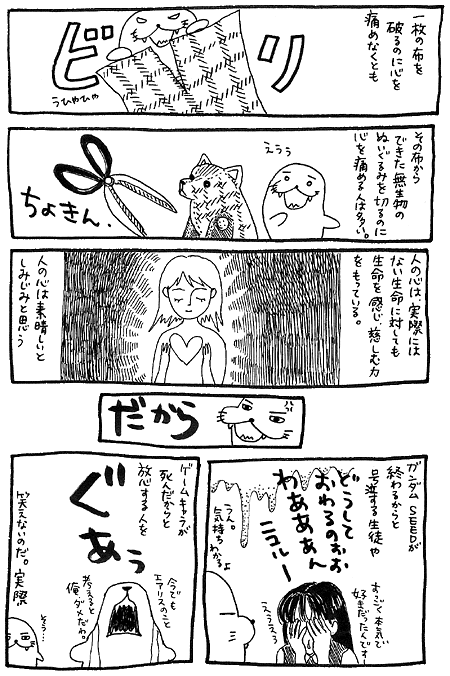 一枚の布を
破るのに心を
痛めなくとも
ビリ
うひゃひゃ
その布から
できた無生物の
ぬいぐるみを切るのに
心を痛める人は多い。
えぅぅ
ちょきん.
人の心は、実際には
ない生命に対しても
生命を感じ慈しむ力
をもっている。
人の心は素晴しいと
しみじみと思う
だから
ガンダムSEEDが
終わるからと
号泣する生徒や
どうして
おわるのおお
わあああん
ニュルー
うん。
気持ちわかるよ
すごく本気で
好きだったんですー
えぅえぅ
ゲームキャラが
死んだからと
放心する人を
ぐあぅ
今でも
エアリスのこと
考えると
俺、ダメだわ
笑えないのだ。実際
そう…